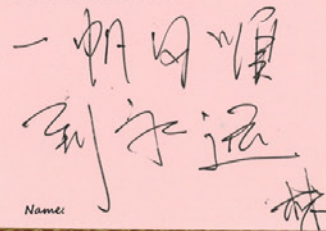 一帆风顺
到永远
林
Name: